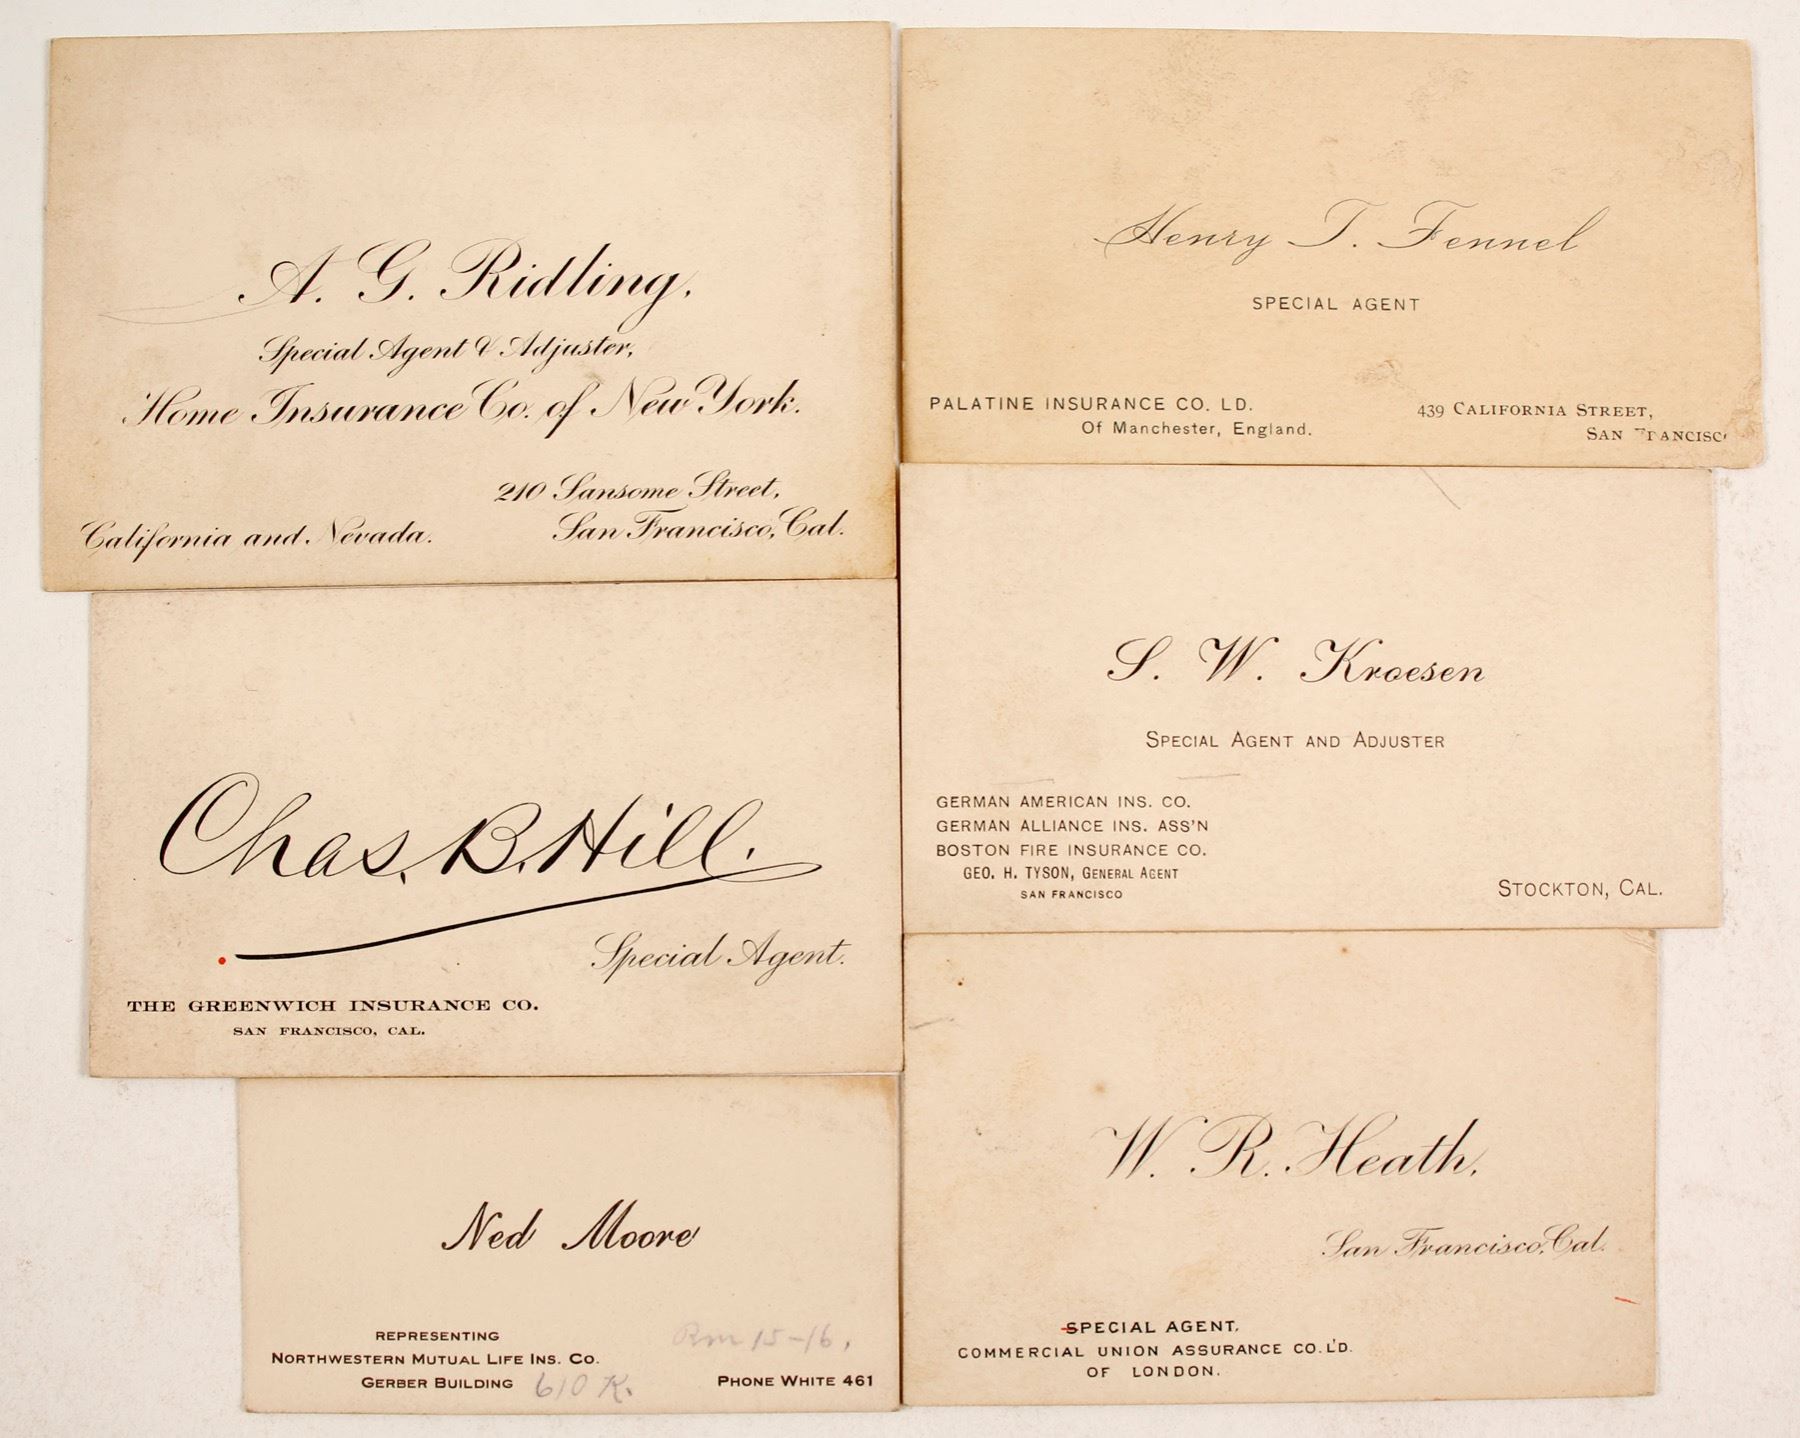 A. G. Ridling,
Special Agent & Adjuster,
Home Insurance Co. of New York.
210 Sansome Street,
California and Nevada.
San Francisco, Cal.
Henry T. Fennel
SPECIAL AGENT
PALATINE INSURANCE CO. LD.
Of Manchester, England.
439 CALIFORNIA STREET,
SAN FRANCISC
Chas. B. Hill.
Special Agent.
THE GREENWICH INSURANCE CO.
SAN FRANCISCO, CAL.
S. W. Kroesen
SPECIAL AGENT AND ADJUSTER
GERMAN AMERICAN INS. CO.
GERMAN ALLIANCE INS. ASS'N
BOSTON FIRE INSURANCE CO.
GEO. H. TYSON, GENERAL AGENT
SAN FRANCISCO
STOCKTON, CAL.
Ned Moore
REPRESENTING
NORTHWESTERN MUTUAL LIFE INS. CO.
GERBER BUILDING 610 K.
Rm 15-16.
PHONE WHITE 461
W. R. Heath,
San Francisco, Cal.
SPECIAL AGENT,
COMMERCIAL UNION ASSURANCE CO. L'D.
OF LONDON.